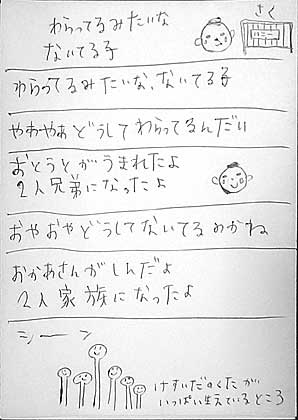 わらってるみたいな
ないてる子
さく
わらってるみたいな、ないてる子
やあやあどうしてわらってるんだい
おとうとがうまれたよ
2人兄弟になったよ
おやおやどうしてないてるのかね
おかあさんがしんだよ
2人家族になったよ
シーーン
けすいだのくたが
いっぱい生えているところ